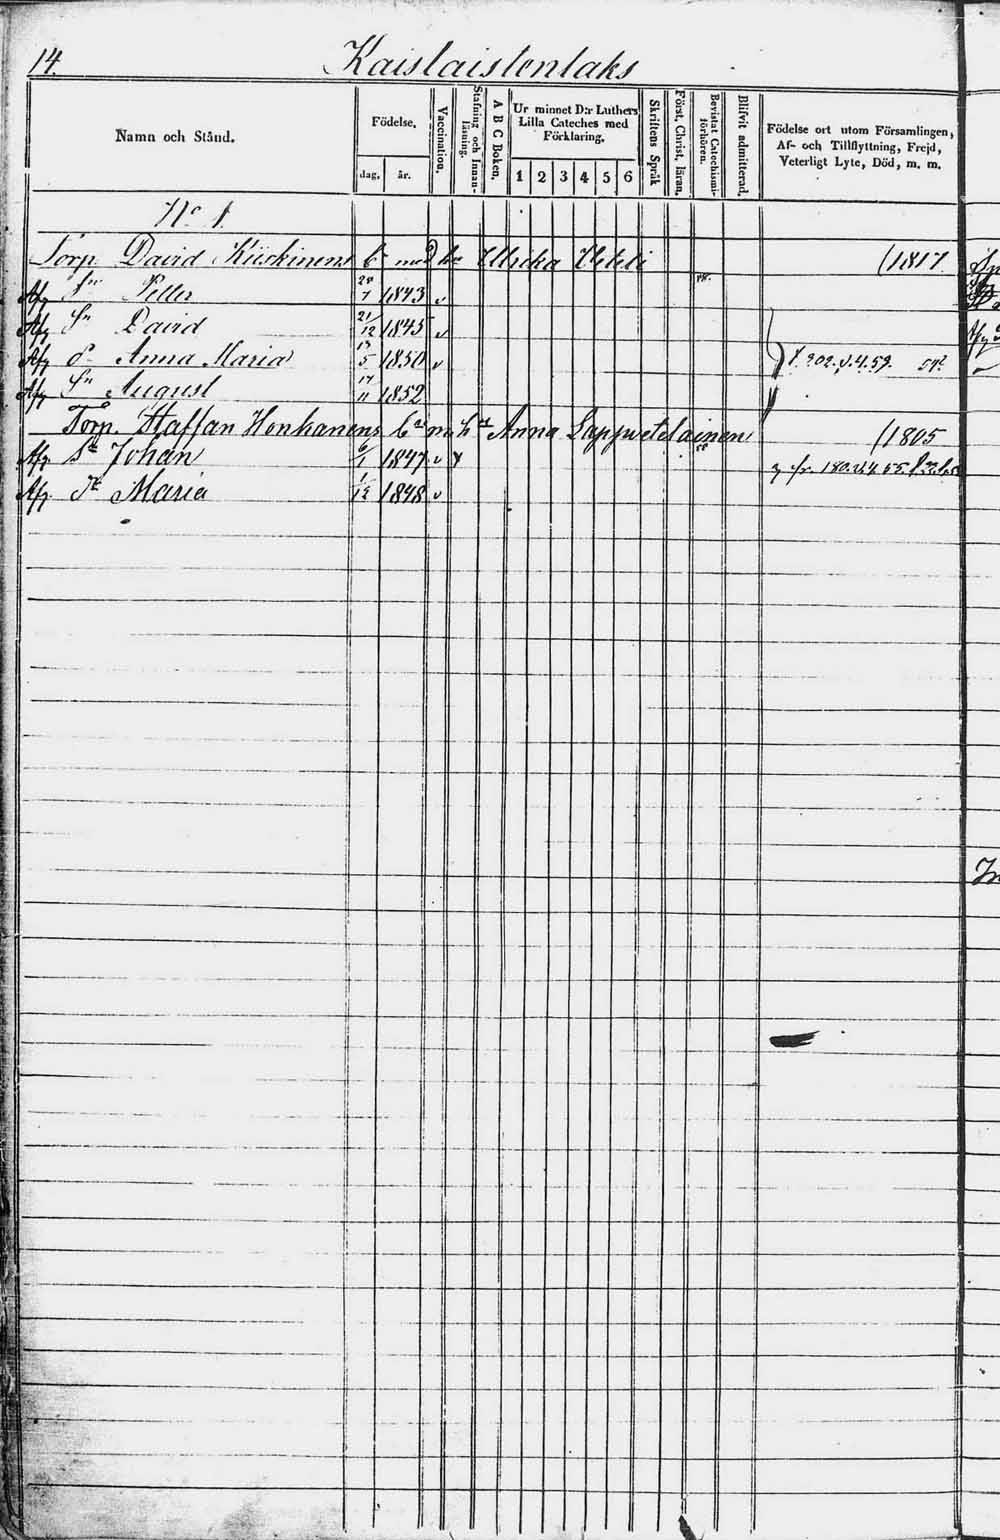 14.
Kaislaistenlaks
Namn och Stånd.
Födelse.
dag. år.
Vaccination.
Stafning och Innan-
läsning.
A B C Boken.
Ur minnet D:r Luthers
Lilla Cateches med
Förklaring.
1 2 3 4 5 6
Skriftens Språk
Först. Christ. läran.
Bevistat Catechismi-
förhören.
Blifvit admitterad.
Födelse ort utom Församlingen,
Af- och Tillflyttning, Frejd,
Veterligt Lyte, Död, m. m.
No 1
Torp. David Kiiskinens bn med hu Ulrika (1817
Afg Sn Petter 28/7 1843 v
Afg Sn David 21/12 1845 v
Afg Dr Anna Maria 13/5 1850 v f. 202. v. 4. 59.
Afg Sn August 17/11 1852
Torp. Staffan Honkanens bn m hu Anna Lappvetelainen (1805
Afg Sn Johan 6/1 1847 v fr. 180.
Afg Dr Maria 1/12 1848 v